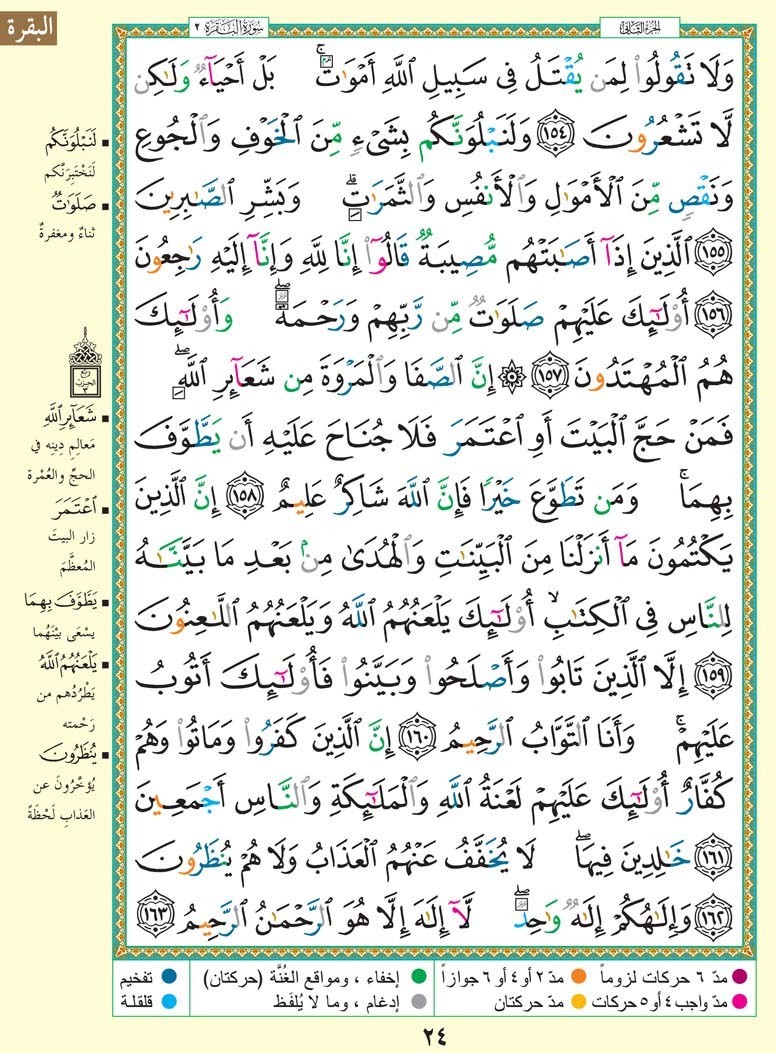 البقرة
الجزء الثاني
سورة البقرة ٢
وَلَا تَقُولُوا۟ لِمَن يُقْتَلُ فِى سَبِيلِ ٱللَّهِ أَمْوَٰتٌۢ ۚ بَلْ أَحْيَآءٌ وَلَٰكِن
لَّا تَشْعُرُونَ ١٥٤ وَلَنَبْلُوَنَّكُم بِشَىْءٍ مِّنَ ٱلْخَوْفِ وَٱلْجُوعِ
وَنَقْصٍ مِّنَ ٱلْأَمْوَٰلِ وَٱلْأَنفُسِ وَٱلثَّمَرَٰتِ ۗ وَبَشِّرِ ٱلصَّٰبِرِينَ
١٥٥ ٱلَّذِينَ إِذَآ أَصَٰبَتْهُم مُّصِيبَةٌ قَالُوٓا۟ إِنَّا لِلَّهِ وَإِنَّآ إِلَيْهِ رَٰجِعُونَ
١٥٦ أُو۟لَٰٓئِكَ عَلَيْهِمْ صَلَوَٰتٌ مِّن رَّبِّهِمْ وَرَحْمَةٌ ۖ وَأُو۟لَٰٓئِكَ
هُمُ ٱلْمُهْتَدُونَ ١٥٧ ۞ إِنَّ ٱلصَّفَا وَٱلْمَرْوَةَ مِن شَعَآئِرِ ٱللَّهِ ۖ
فَمَنْ حَجَّ ٱلْبَيْتَ أَوِ ٱعْتَمَرَ فَلَا جُنَاحَ عَلَيْهِ أَن يَطَّوَّفَ
بِهِمَا ۚ وَمَن تَطَوَّعَ خَيْرًا فَإِنَّ ٱللَّهَ شَاكِرٌ عَلِيمٌ ١٥٨ إِنَّ ٱلَّذِينَ
يَكْتُمُونَ مَآ أَنزَلْنَا مِنَ ٱلْبَيِّنَٰتِ وَٱلْهُدَىٰ مِنۢ بَعْدِ مَا بَيَّنَّٰهُ
لِلنَّاسِ فِى ٱلْكِتَٰبِ ۙ أُو۟لَٰٓئِكَ يَلْعَنُهُمُ ٱللَّهُ وَيَلْعَنُهُمُ ٱللَّٰعِنُونَ
١٥٩ إِلَّا ٱلَّذِينَ تَابُوا۟ وَأَصْلَحُوا۟ وَبَيَّنُوا۟ فَأُو۟لَٰٓئِكَ أَتُوبُ
عَلَيْهِمْ ۚ وَأَنَا ٱلتَّوَّابُ ٱلرَّحِيمُ ١٦٠ إِنَّ ٱلَّذِينَ كَفَرُوا۟ وَمَاتُوا۟ وَهُمْ
كُفَّارٌ أُو۟لَٰٓئِكَ عَلَيْهِمْ لَعْنَةُ ٱللَّهِ وَٱلْمَلَٰٓئِكَةِ وَٱلنَّاسِ أَجْمَعِينَ
١٦١ خَٰلِدِينَ فِيهَا ۖ لَا يُخَفَّفُ عَنْهُمُ ٱلْعَذَابُ وَلَا هُمْ يُنظَرُونَ
١٦٢ وَإِلَٰهُكُمْ إِلَٰهٌ وَٰحِدٌ ۖ لَّآ إِلَٰهَ إِلَّا هُوَ ٱلرَّحْمَٰنُ ٱلرَّحِيمُ ١٦٣
لَنَبْلُوَنَّكُم
لَنَخْتَبِرَنَّكم
صَلَوَٰتٌ
ثناءٌ ومغفرةٌ
ربع
الحزب
٣
شَعَآئِرِ ٱللَّهِ
مَعالِمِ دِينِه في
الحجِّ والعُمْرة
ٱعْتَمَرَ
زارَ البيتَ
المُعظَّمَ
يَطَّوَّفَ بِهِمَا
يسْعَى بيْنَهُما
يَلْعَنُهُمُ ٱللَّهُ
يَطْرُدُهم من
رَحْمته
يُنظَرُونَ
يُؤخَّرُونَ عن
العَذابِ لَحْظَةً
مدّ ٦ حركات لزوماً مدّ ٢ أو ٤ أو ٦ جوازاً إخفاء ، ومواقع الغُنَّة (حركتان) تفخيم
مدّ واجب ٤ أو ٥ حركات مدّ حركتان إدغام ، وما لا يُلفَظ قلقلة
٢٤